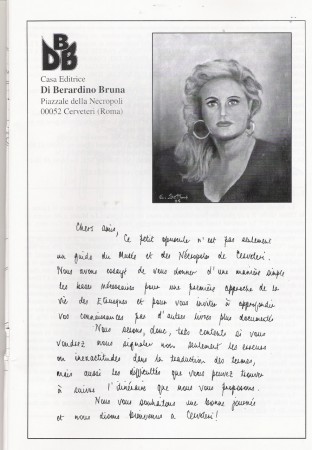 DBB
Casa Editrice
Di Berardino Bruna
Piazzale della Necropoli
00052 Cerveteri (Roma)
Chers amis,
Ce petit opuscule n'est pas seulement
un guide du Musée et des Nécropoles de Cerveteri.
Nous avons essayé de vous donner d'une manière simple
les bases nécessaires pour une première approche de la
vie des Etrusques et pour vous inviter à approfondir
vos connaissances par d'autres livres plus documentés
Nous serons, donc, très contents si vous
voudrez nous signaler non seulement les erreurs
ou inexactitudes dans la traduction des termes,
mais aussi les difficultés que vous pouvez trouver
à suivre l'itinéraire que nous vous proposons.
Nous vous souhaitons une bonne journée
et nous disons bienvenus a Cerveteri!